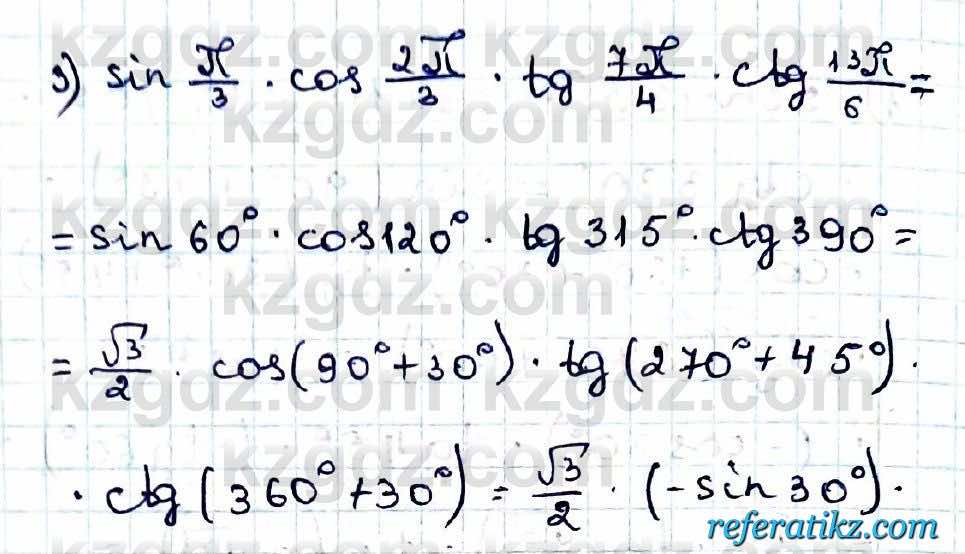 3) sin π/3 · cos 2π/3 · tg 7π/4 · ctg 13π/6 =
= sin 60° · cos 120° · tg 315° · ctg 390° =
= √3/2 · cos(90° + 30°) · tg(270° + 45°) ·
· ctg(360° + 30°) = √3/2 · (-sin 30°) ·
kzgdz.com
referatikz.com